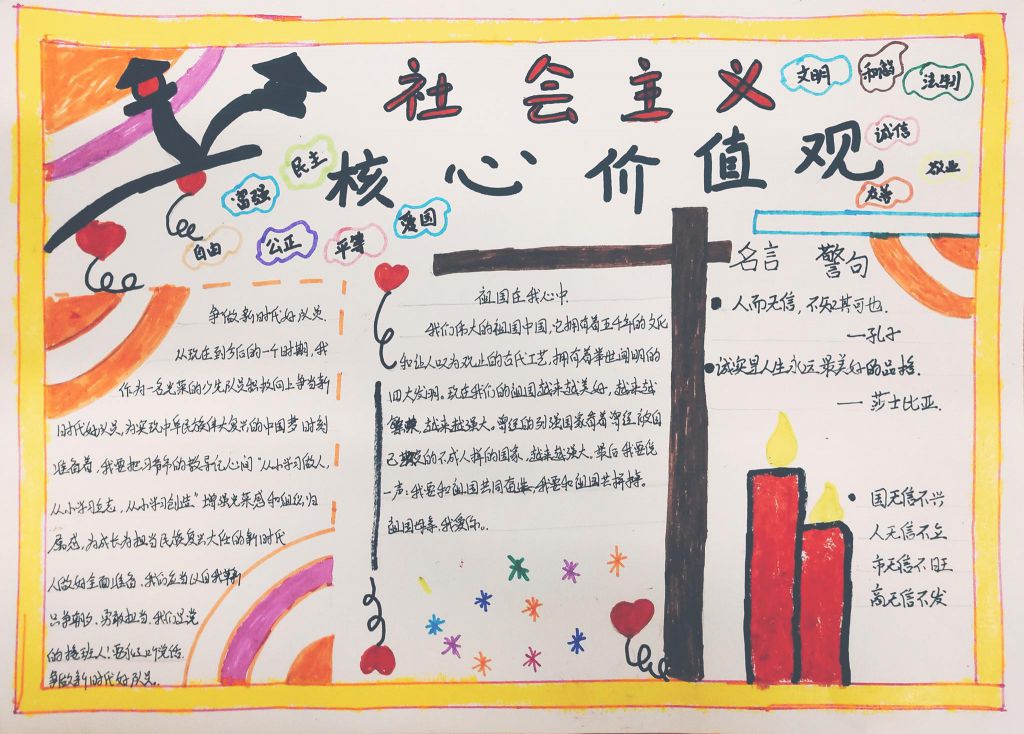 社会主义
核心价值观
文明
和谐
法制
诚信
敬业
友善
民主
富强
爱国
自由
公正
平等
争做新时代好队员
从现在到今后的一个时期，我
作为一名光荣的少先队员积极向上争当新
时代好队员，为实现中华民族伟大复兴的中国梦时刻
准备着，我要把习爷爷的教导记心间“从小学习做人，
从小学习立志，从小学习创造”增强光荣感和组织归
属感，为成长为担当民族复兴大任的新时代
人做好全面准备，我们应当以自我革新
只争朝夕，勇敢担当，我们是党
的接班人！要永远听党话
争做新时代好队员。
祖国在我心中
我们伟大的祖国中国，它拥有着五千年的文化
和让人叹为观止的古代工艺，拥有着举世闻明的
四大发明。现在我们的祖国越来越美好，越来越
繁荣，越来越强大。曾经的列强国家看着曾经被自己
的不成人样的国家，越来越强大。最后我要说
一声：我要和祖国共同奋进，我要和祖国共拼搏。
祖国母亲，我爱你。
名言 警句
人而无信，不知其可也.
—孔子
诚实是人生永远最美好的品格.
— 莎士比亚.
国无信不兴
人无信不立
市无信不旺
商无信不发